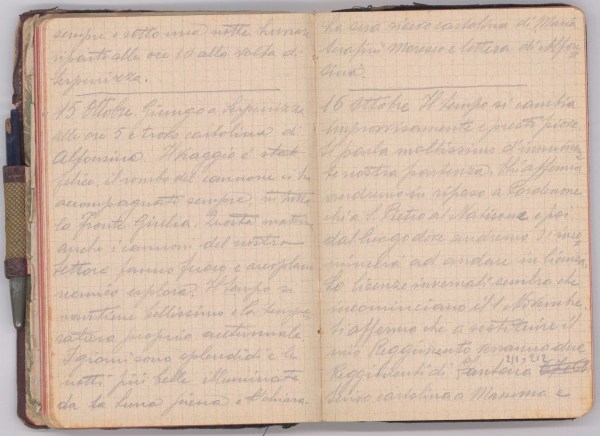 sempre e sotto una notte lunare
riparto alle ore 10 alla volta di
Serpenizza.
15 Ottobre. Giungo a Serpenizza
alle ore 5 e trovo cartolina di
Alfonsina. Il viaggio è stato
felice, il rombo dei cannoni ci ha
accompagnato sempre, in tutta
la fronte Giulia. Questa mattina
anche i cannoni del nostro
settore fanno fuoco e aeroplano
nemico esplora. Il tempo si
mantiene bellissimo e la tempe
ratura proprio eccezionale
I giorni sono splendidi e le
notti più belle illuminate
da la luna piena e chiara.
Ha sera ricevo cartolina di Maria
Serafini Moresco e lettera di Alfon
sina.
16 Ottobre Il tempo si cambia
improvvisamente e presto piove.
Si parla moltissimo d'imminen
te nostra partenza. Chi afferma
andremo in riposo a Pordenone
chi a S. Pietro al Natisone e poi
dal luogo dove andremo si inco
mincerà ad andare in licenza.
Le licenze invernali sembra che
incominciano il 1 Novembre.
Si afferma che a sostituire il
mio Reggimento verranno due
211 e 212
Reggimenti di Fanteria
Scrivo cartolina a Mamma e